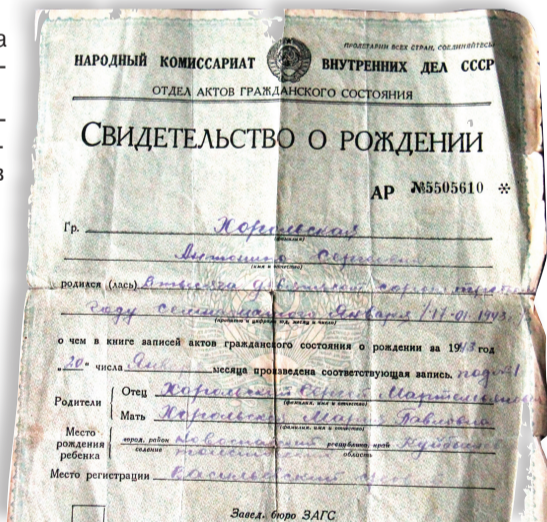 а
–
–
–
в
ПРОЛЕТАРИИ ВСЕХ СТРАН, СОЕДИНЯЙТЕСЬ
НАРОДНЫЙ КОМИССАРИАТ ВНУТРЕННИХ ДЕЛ СССР
ОТДЕЛ АКТОВ ГРАЖДАНСКОГО СОСТОЯНИЯ
СВИДЕТЕЛЬСТВО О РОЖДЕНИИ
АР №5505610 *
Гр. Хорольская
(фамилия)
Антонина Сергеевна
(имя и отчество)
родился (лась) тысяча девятьсот сорок третьем
году семнадцатого Января /17-01.1943
(прописью и цифрами год, месяц и число)
о чем в книге записей актов гражданского состояния о рождении за 1943 год
„20" числа Янв месяца произведена соответствующая запись. под №1
Родители Отец Хорольский Сергей
(фамилия, имя и отчество)
Мать Хорольская Павловна
(фамилия, имя и отчество)
Место рождения ребенка город, район республика, край
селение область
Место регистрации
Завед. бюро ЗАГС